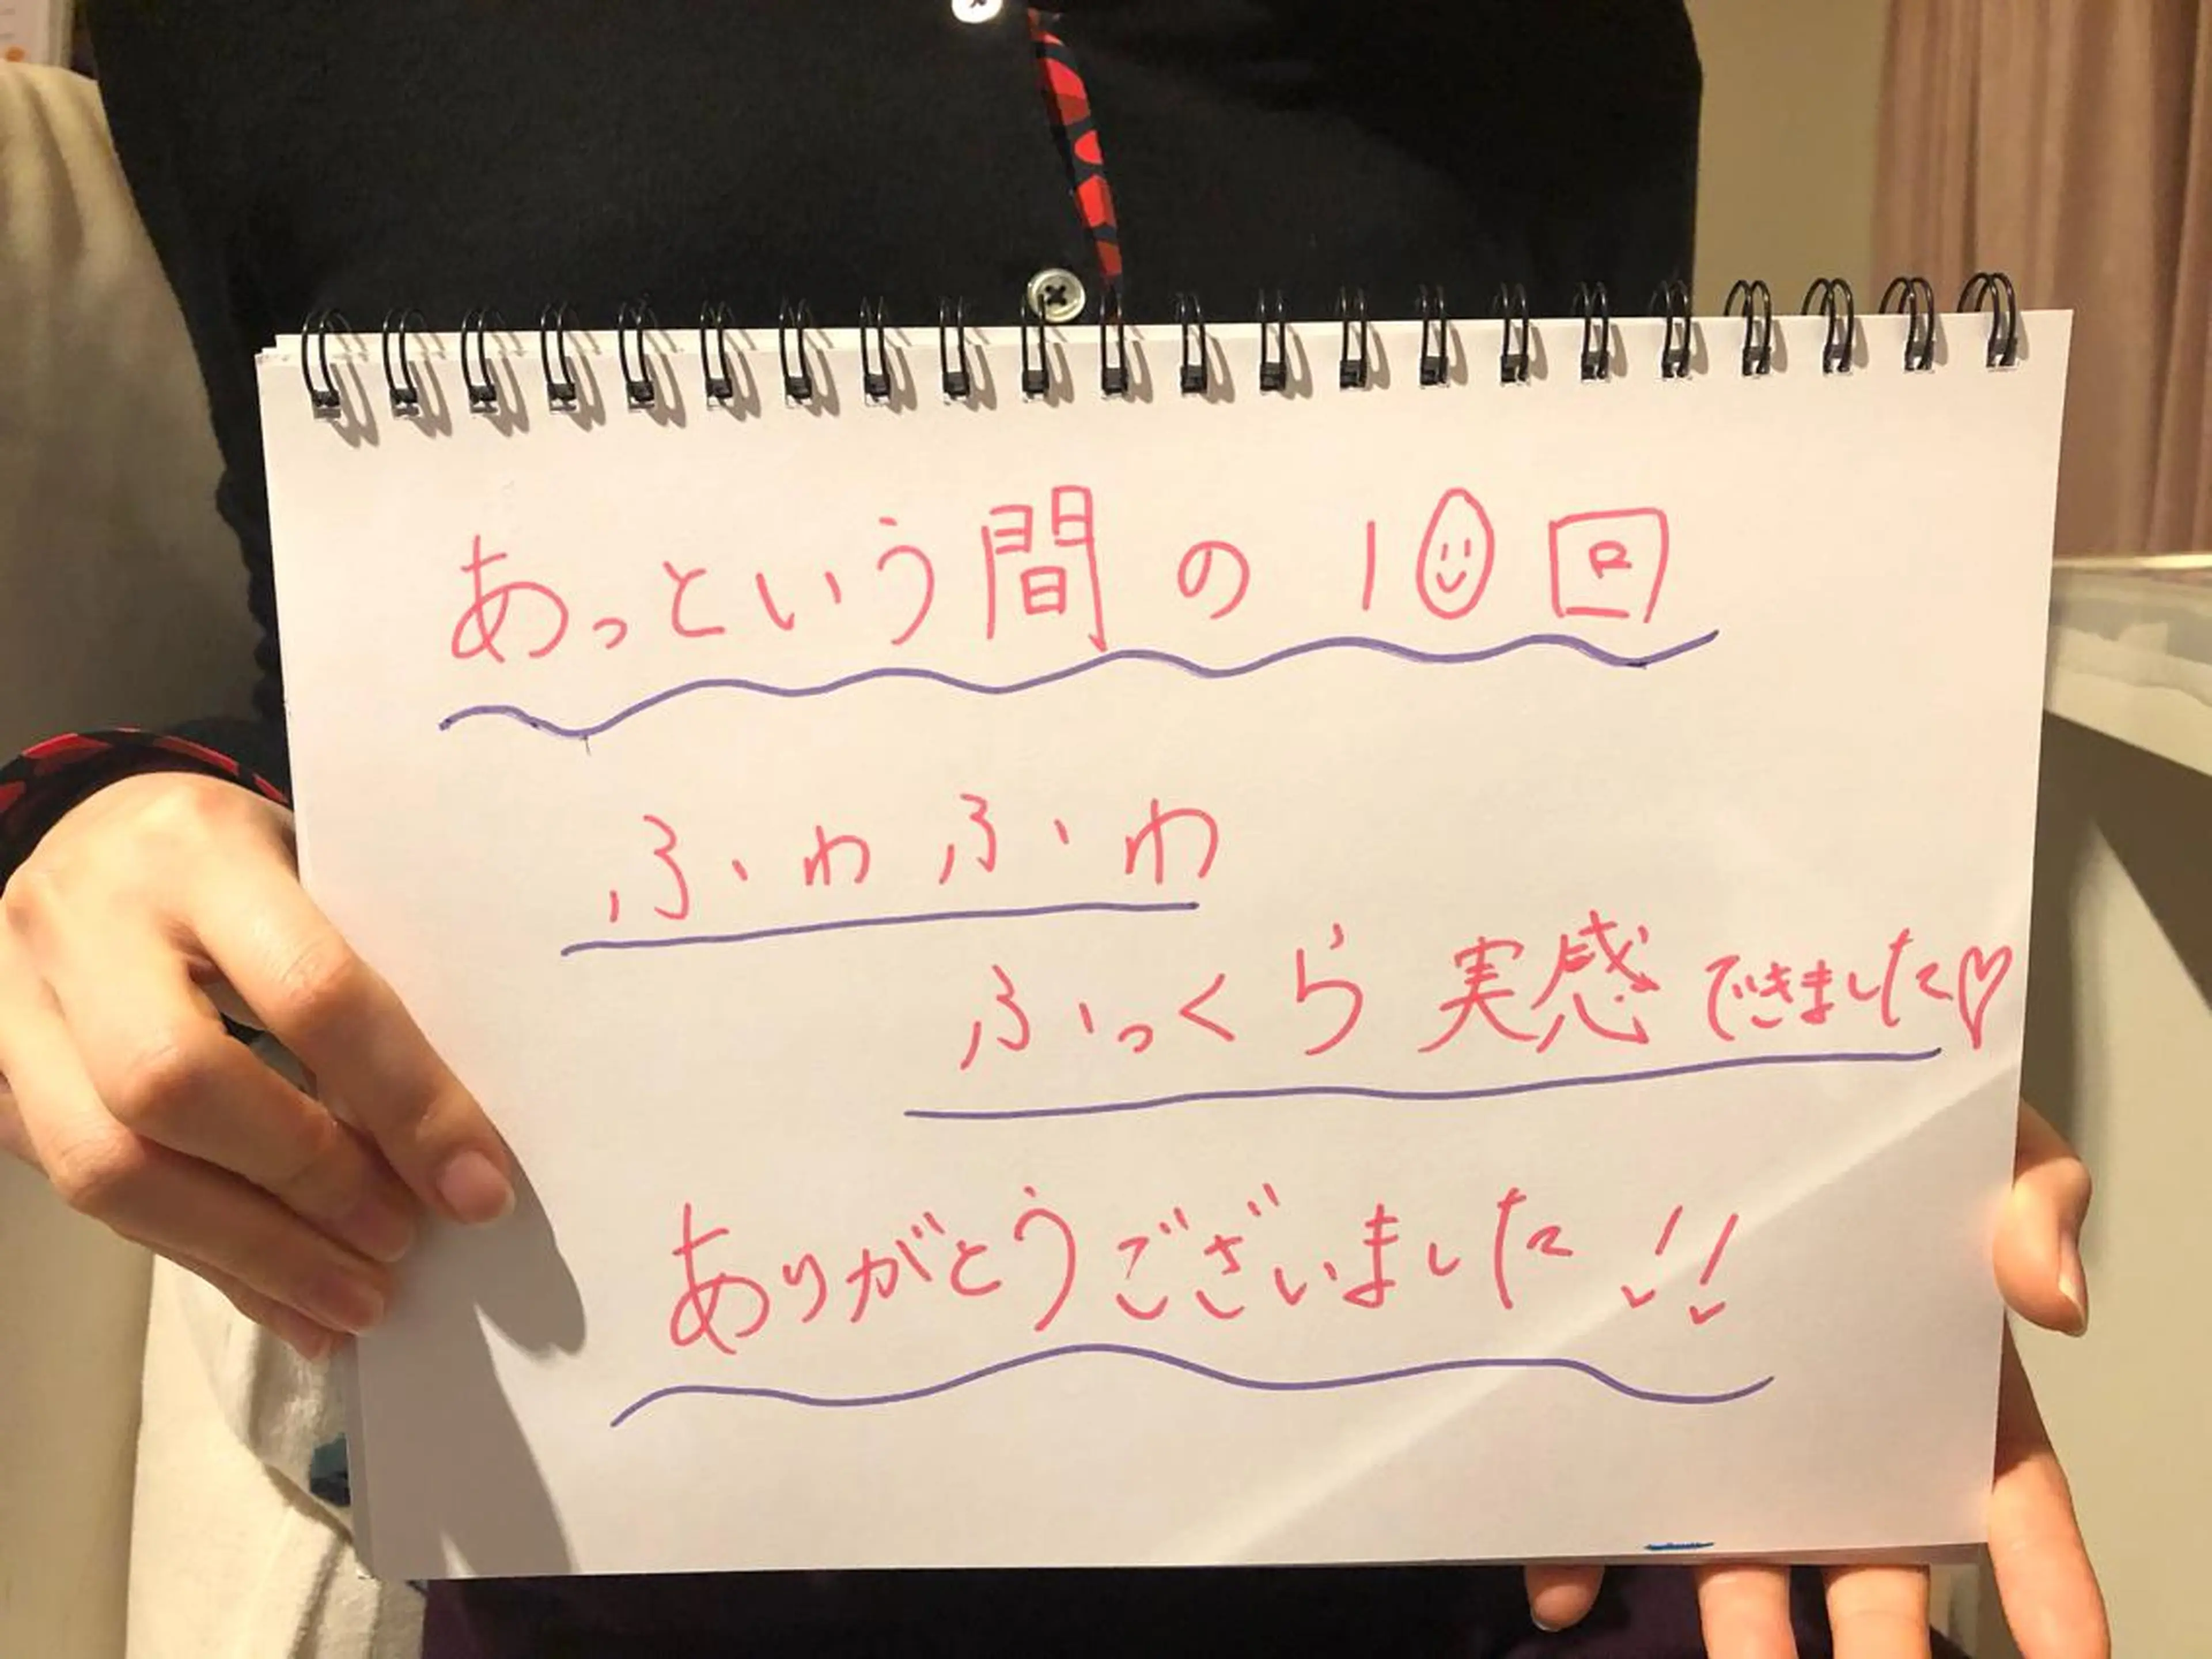 あっという間の10回
ふわふわ
ふっくら実感できました♡
ありがとうございました!!